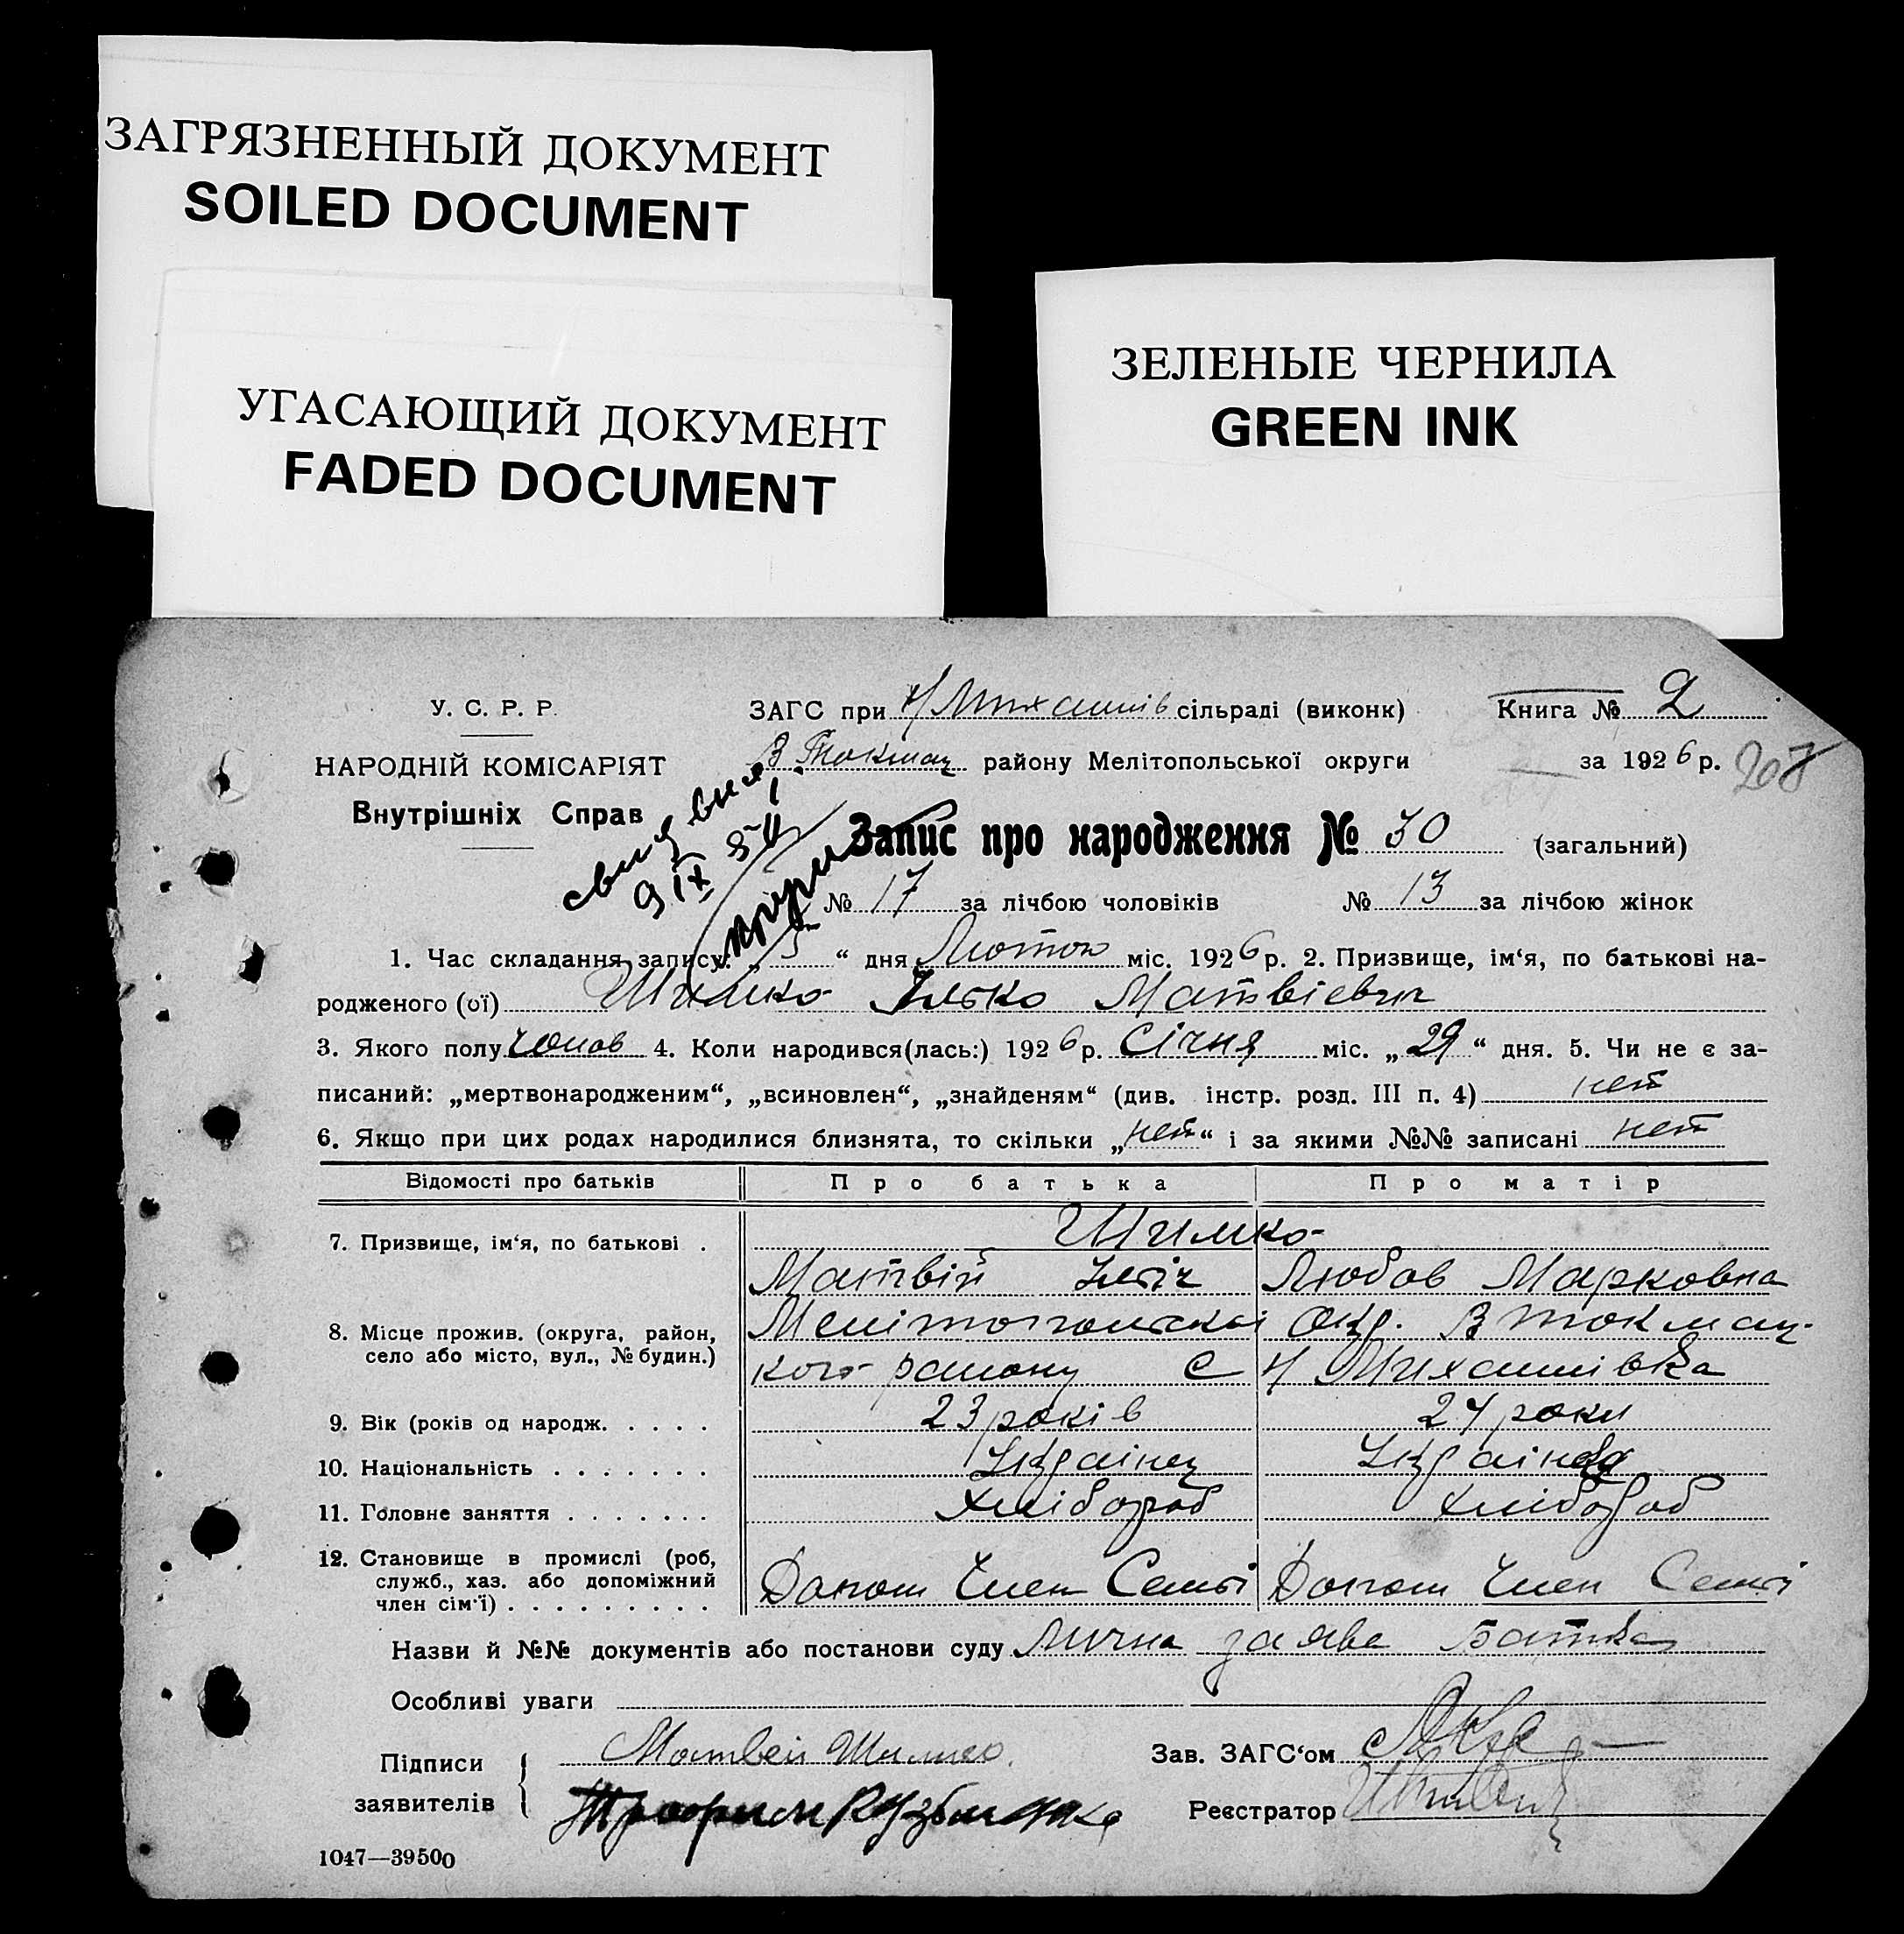 ЗАГРЯЗНЕННЫЙ ДОКУМЕНТ
SOILED DOCUMENT
УГАСАЮЩИЙ ДОКУМЕНТ
FADED DOCUMENT
ЗЕЛЕНЫЕ ЧЕРНИЛА
GREEN INK
У. С. Р. Р.
НАРОДНІЙ КОМІСАРІЯТ
Внутрішніх Справ
ЗАГС при Н/Михайлів сільраді (виконк)
Книга № 2
В Токмац району Мелітопольської округи
за 1926 р. 208
9 IX
Запис про народження № 30 (загальний)
№ 17 за лічбою чоловіків № 13 за лічбою жінок
1. Час складання запису: „ 5 “ дня Лютого міс. 1926 р. 2. Призвище, ім‘я, по батькові на-
родженого (ої) Шимко Ілько Матвієвич
3. Якого полу чолов 4. Коли народився(лась:) 1926 р. Січня міс. „ 29 “ дня. 5. Чи не є за-
писаний: „мертвонародженим“, „всиновлен“, „знайденям“ (див. інстр. розд. III п. 4) нет
6. Якщо при цих родах народилися близнята, то скільки „ нет “ і за якими №№ записані нет
Відомості про батьків Про батька Про матір
7. Призвище, ім‘я, по батькові . Шимко
Матвій Ілліч Любов Марковна
8. Місце прожив. (округа, район,
село або місто, вул., № будин.)
Мелітопольскої Окр. В Токмац-
кого району С Н Михайлівка
9. Вік (років од народж. . . . . 23 років 24 роки
10. Національність . . . . . . . Українец Українка
11. Головне заняття . . . . . . . Хлібороб Хлібороб
12. Становище в промислі (роб,
служб., хаз. або допоміжний
член сім‘ї) . . . . . . . . .
Допом Член Семьї Допом Член Семьї
Назви й №№ документів або постанови суду Лична заява Батька
Особливі уваги
Підписи
заявителів
Матвей Шимко
Трофим
Зав. ЗАГС‘ом
Реєстратор
1047—39500